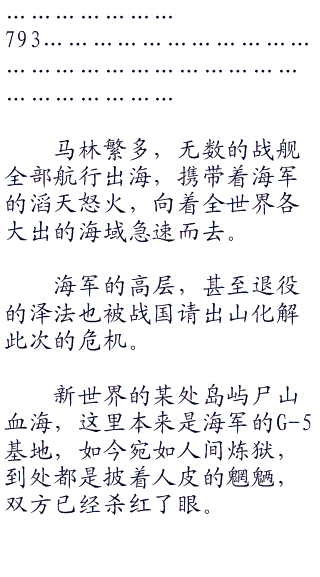 … … … … … … …
793… … … … … … … … … … …
… … … … … … … … … … … …
… … … … … … …
马林繁多，无数的战舰
全部航行出海，携带着海军
的滔天怒火，向着全世界各
大出的海域急速而去。
海军的高层，甚至退役
的泽法也被战国请出山化解
此次的危机。
新世界的某处岛屿尸山
血海，这里本来是海军的G-5
基地，如今宛如人间炼狱，
到处都是披着人皮的魍魉，
双方已经杀红了眼。